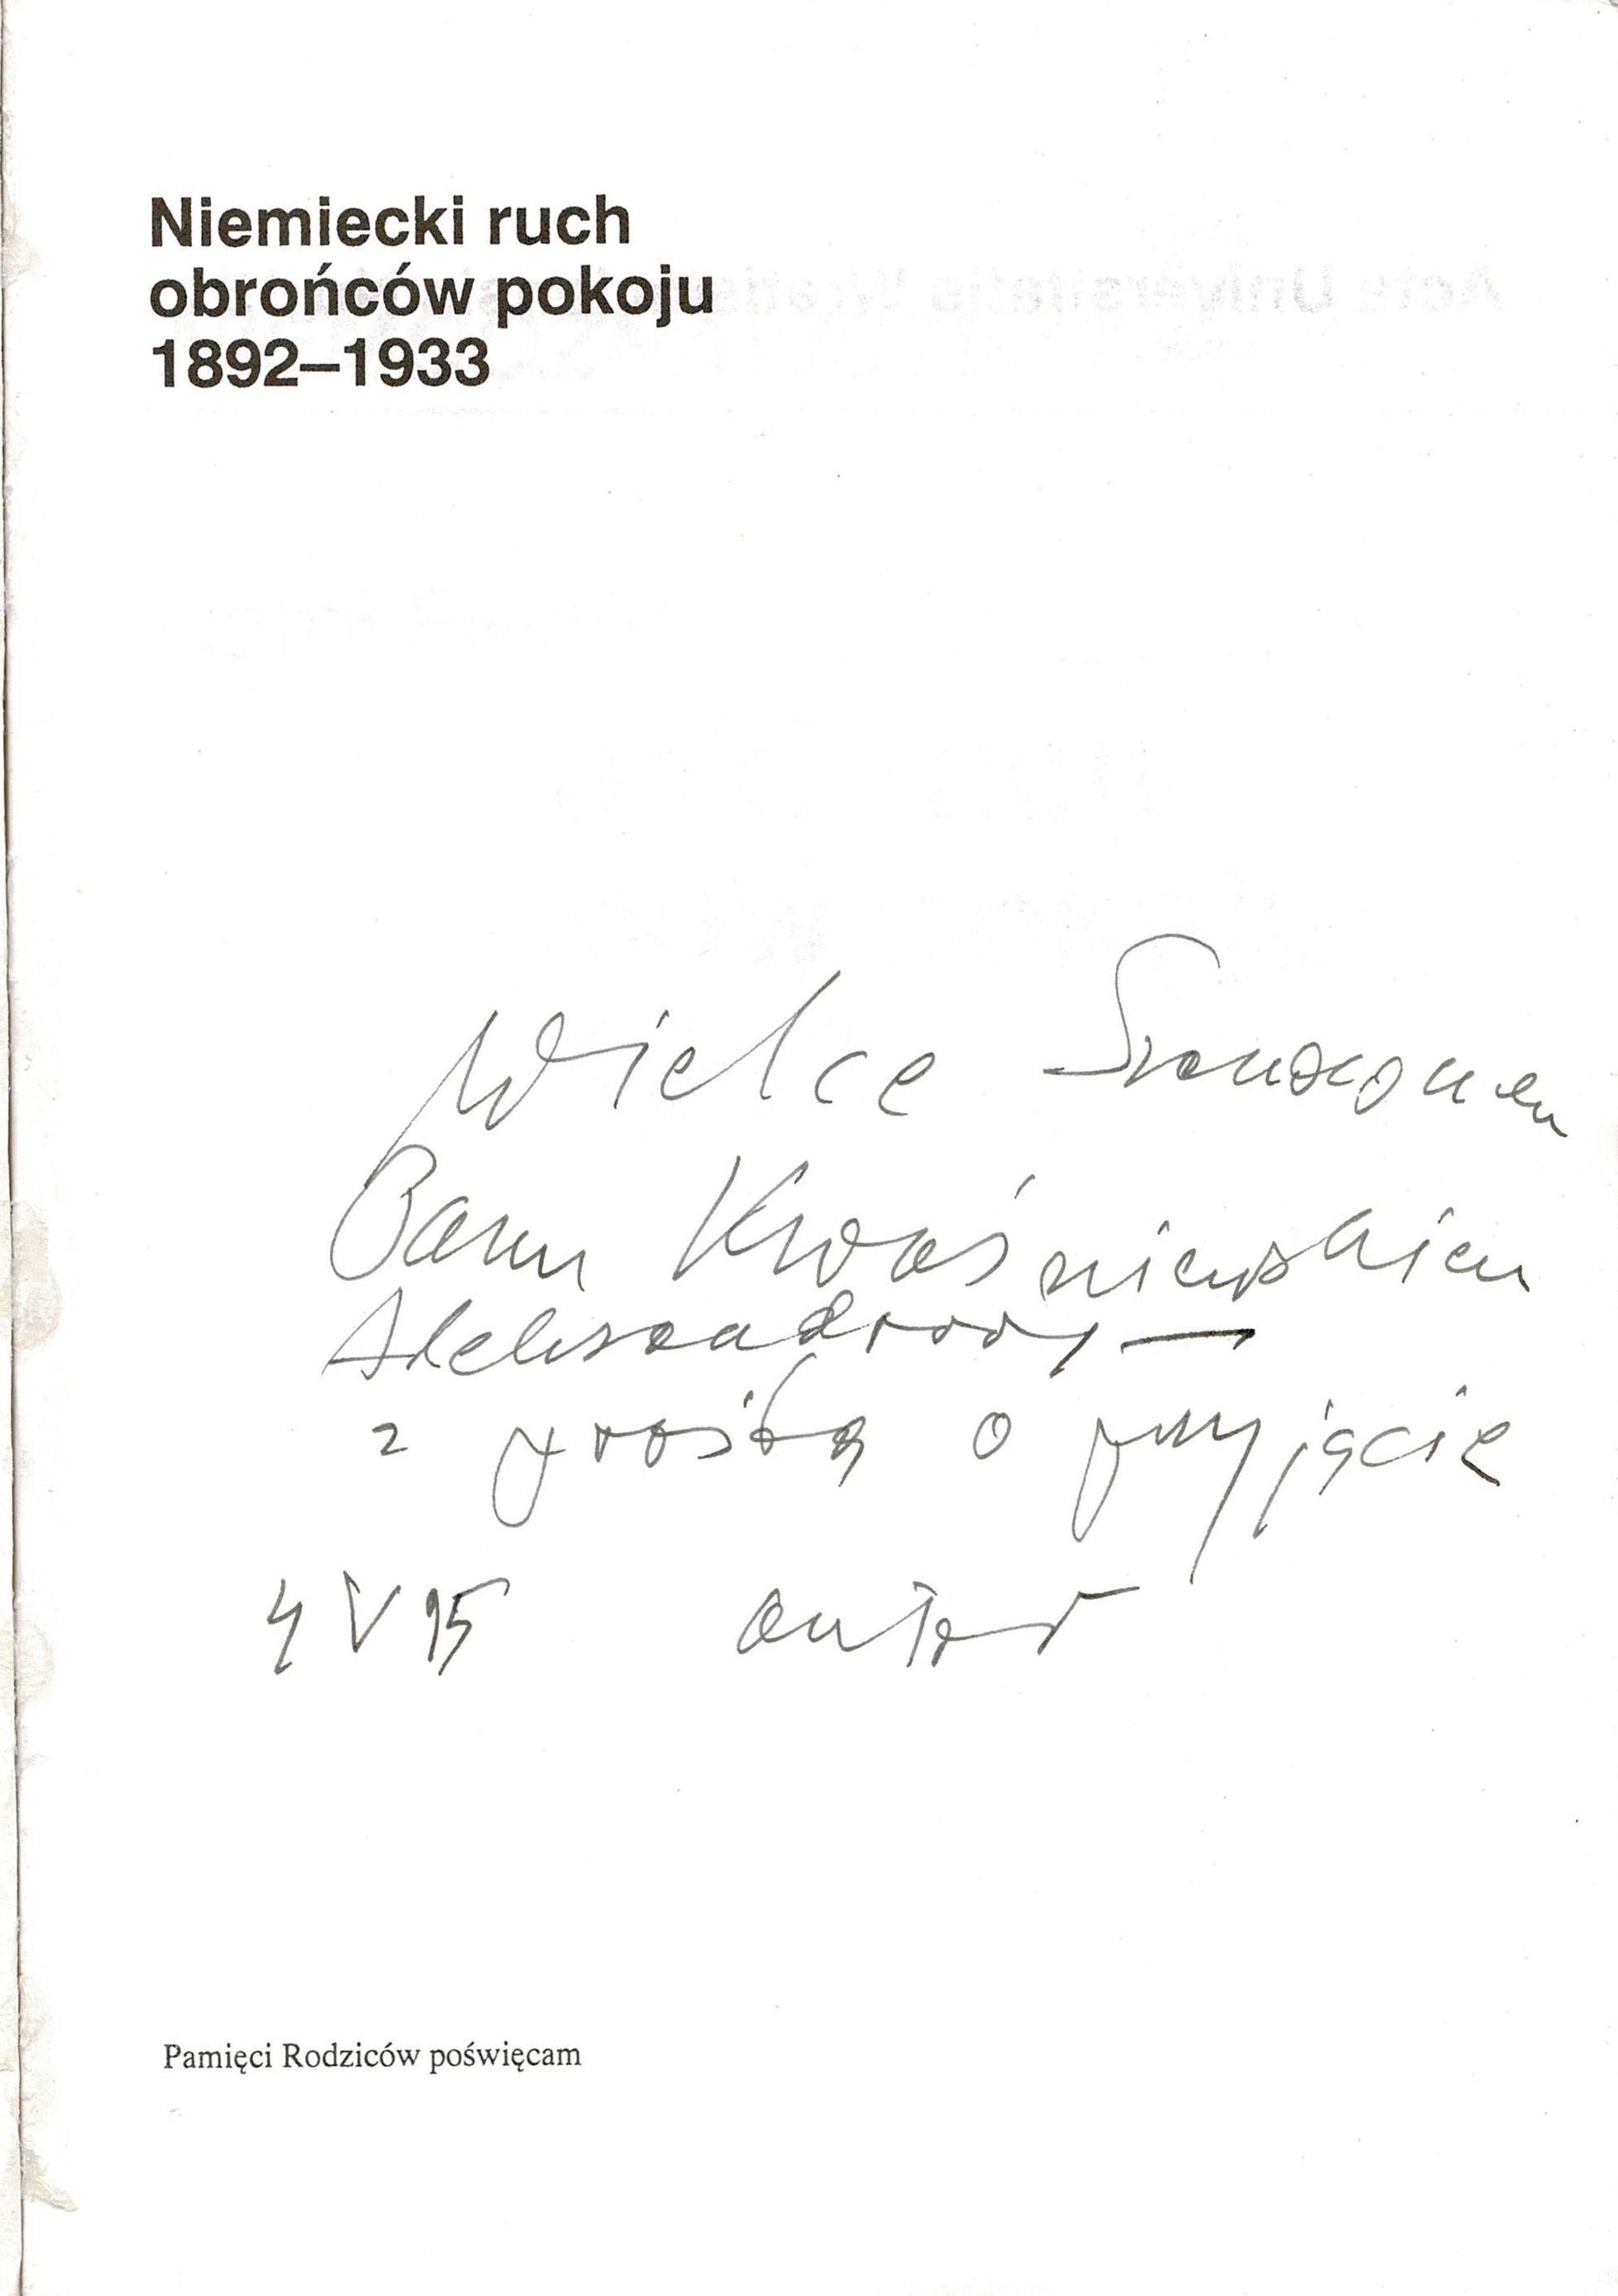 Niemiecki ruch
obrońców pokoju
1892–1933
Wielce Szanownem
Panu Kwaśniewskiem
Aleksandrowi —
z prośbą o przyjęcie
4 V 95 autor
Pamięci Rodziców poświęcam